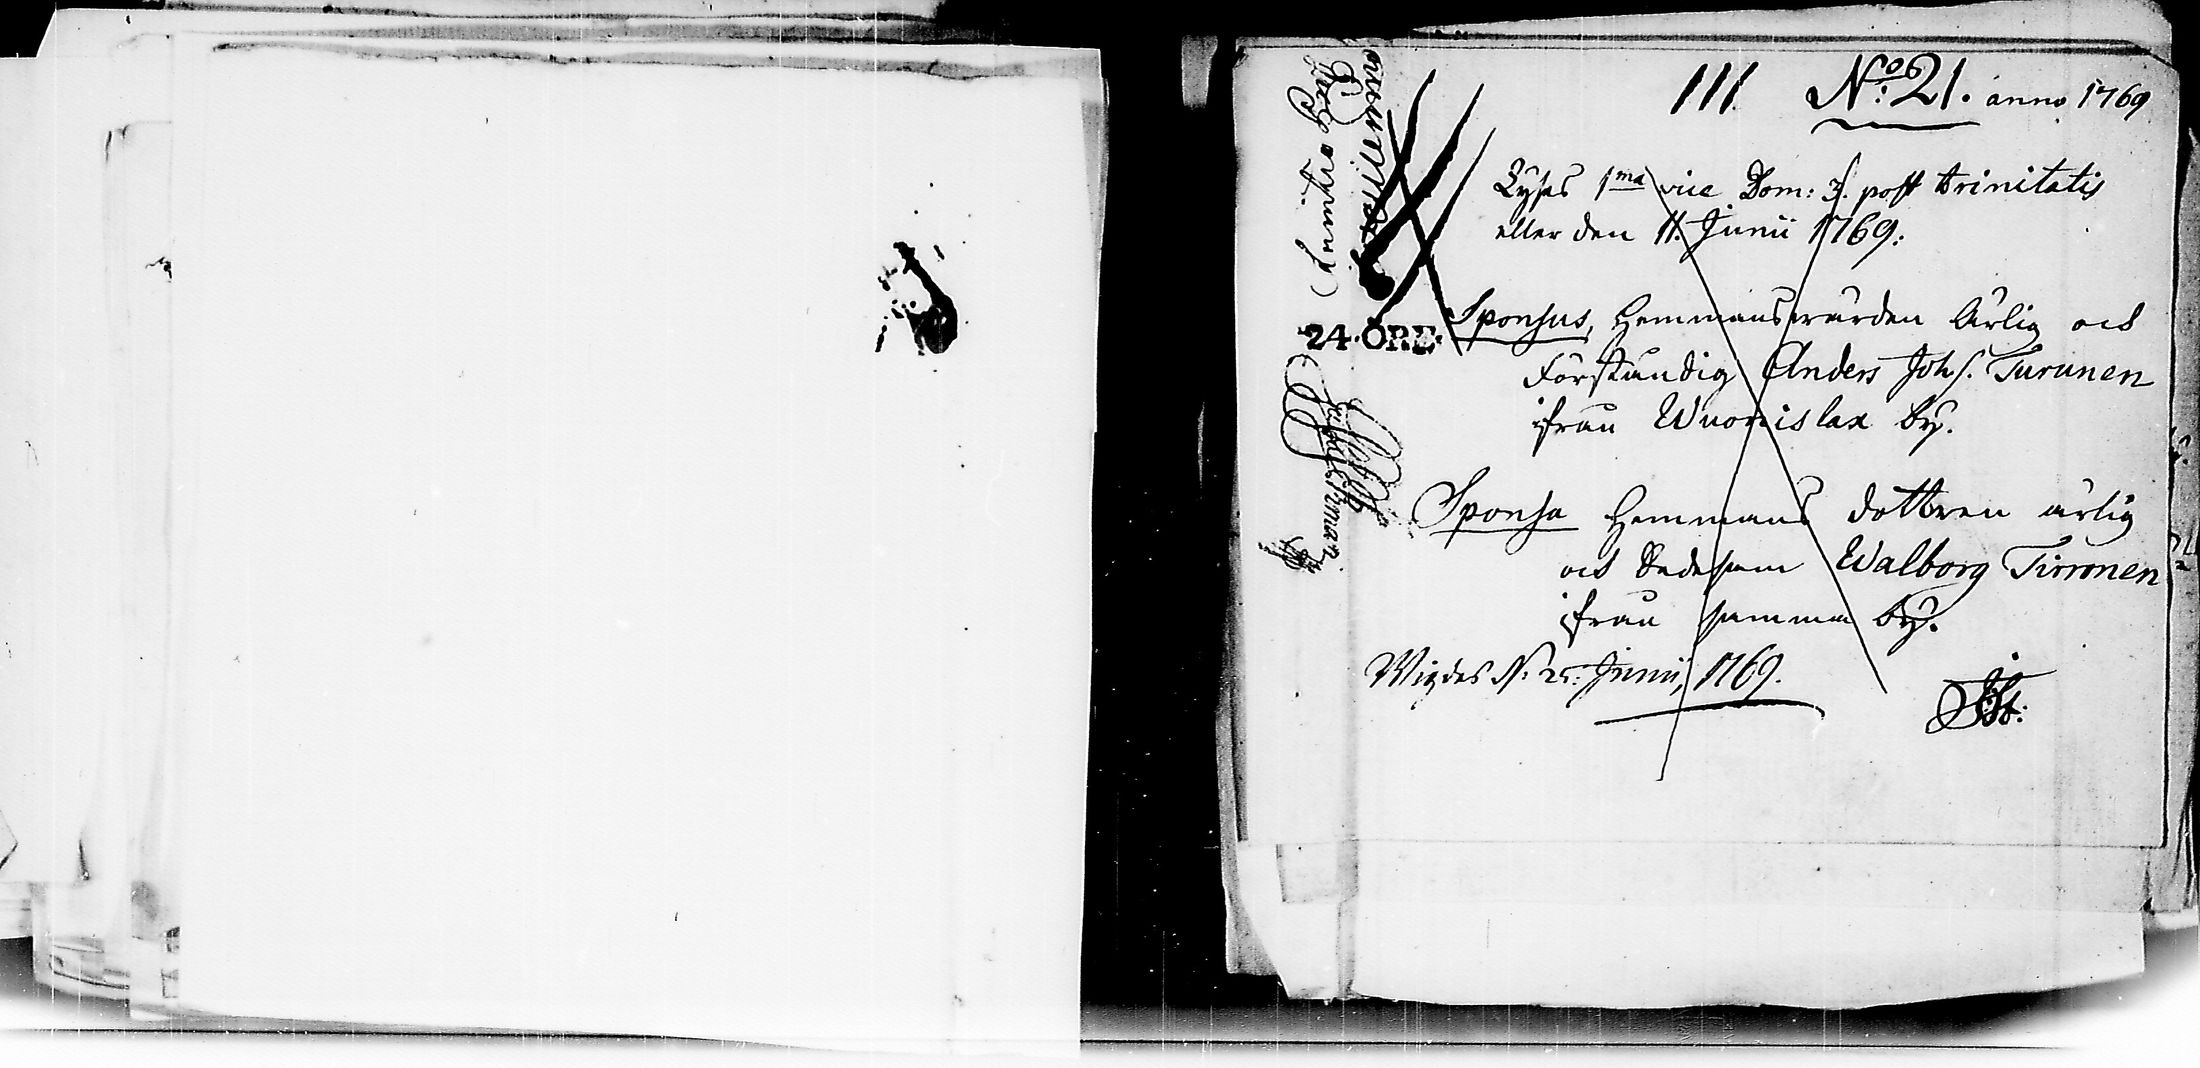 111. No: 21. anno 1769
Lyses 1ma vice Dom: 3. post trinitatis
eller den 11. Junii 1769:
24·ÖRE·
Sponsus, Hemmanswärden Ärlig och
Förståndig Anders Joh s. Turunen
ifrån Wuonislax by.
Sponsa Hemmans dottren ärlig
och Dedesam Walborg Tirronen
ifrån samma by.
Wigdes d: 25: Junii, 1769.